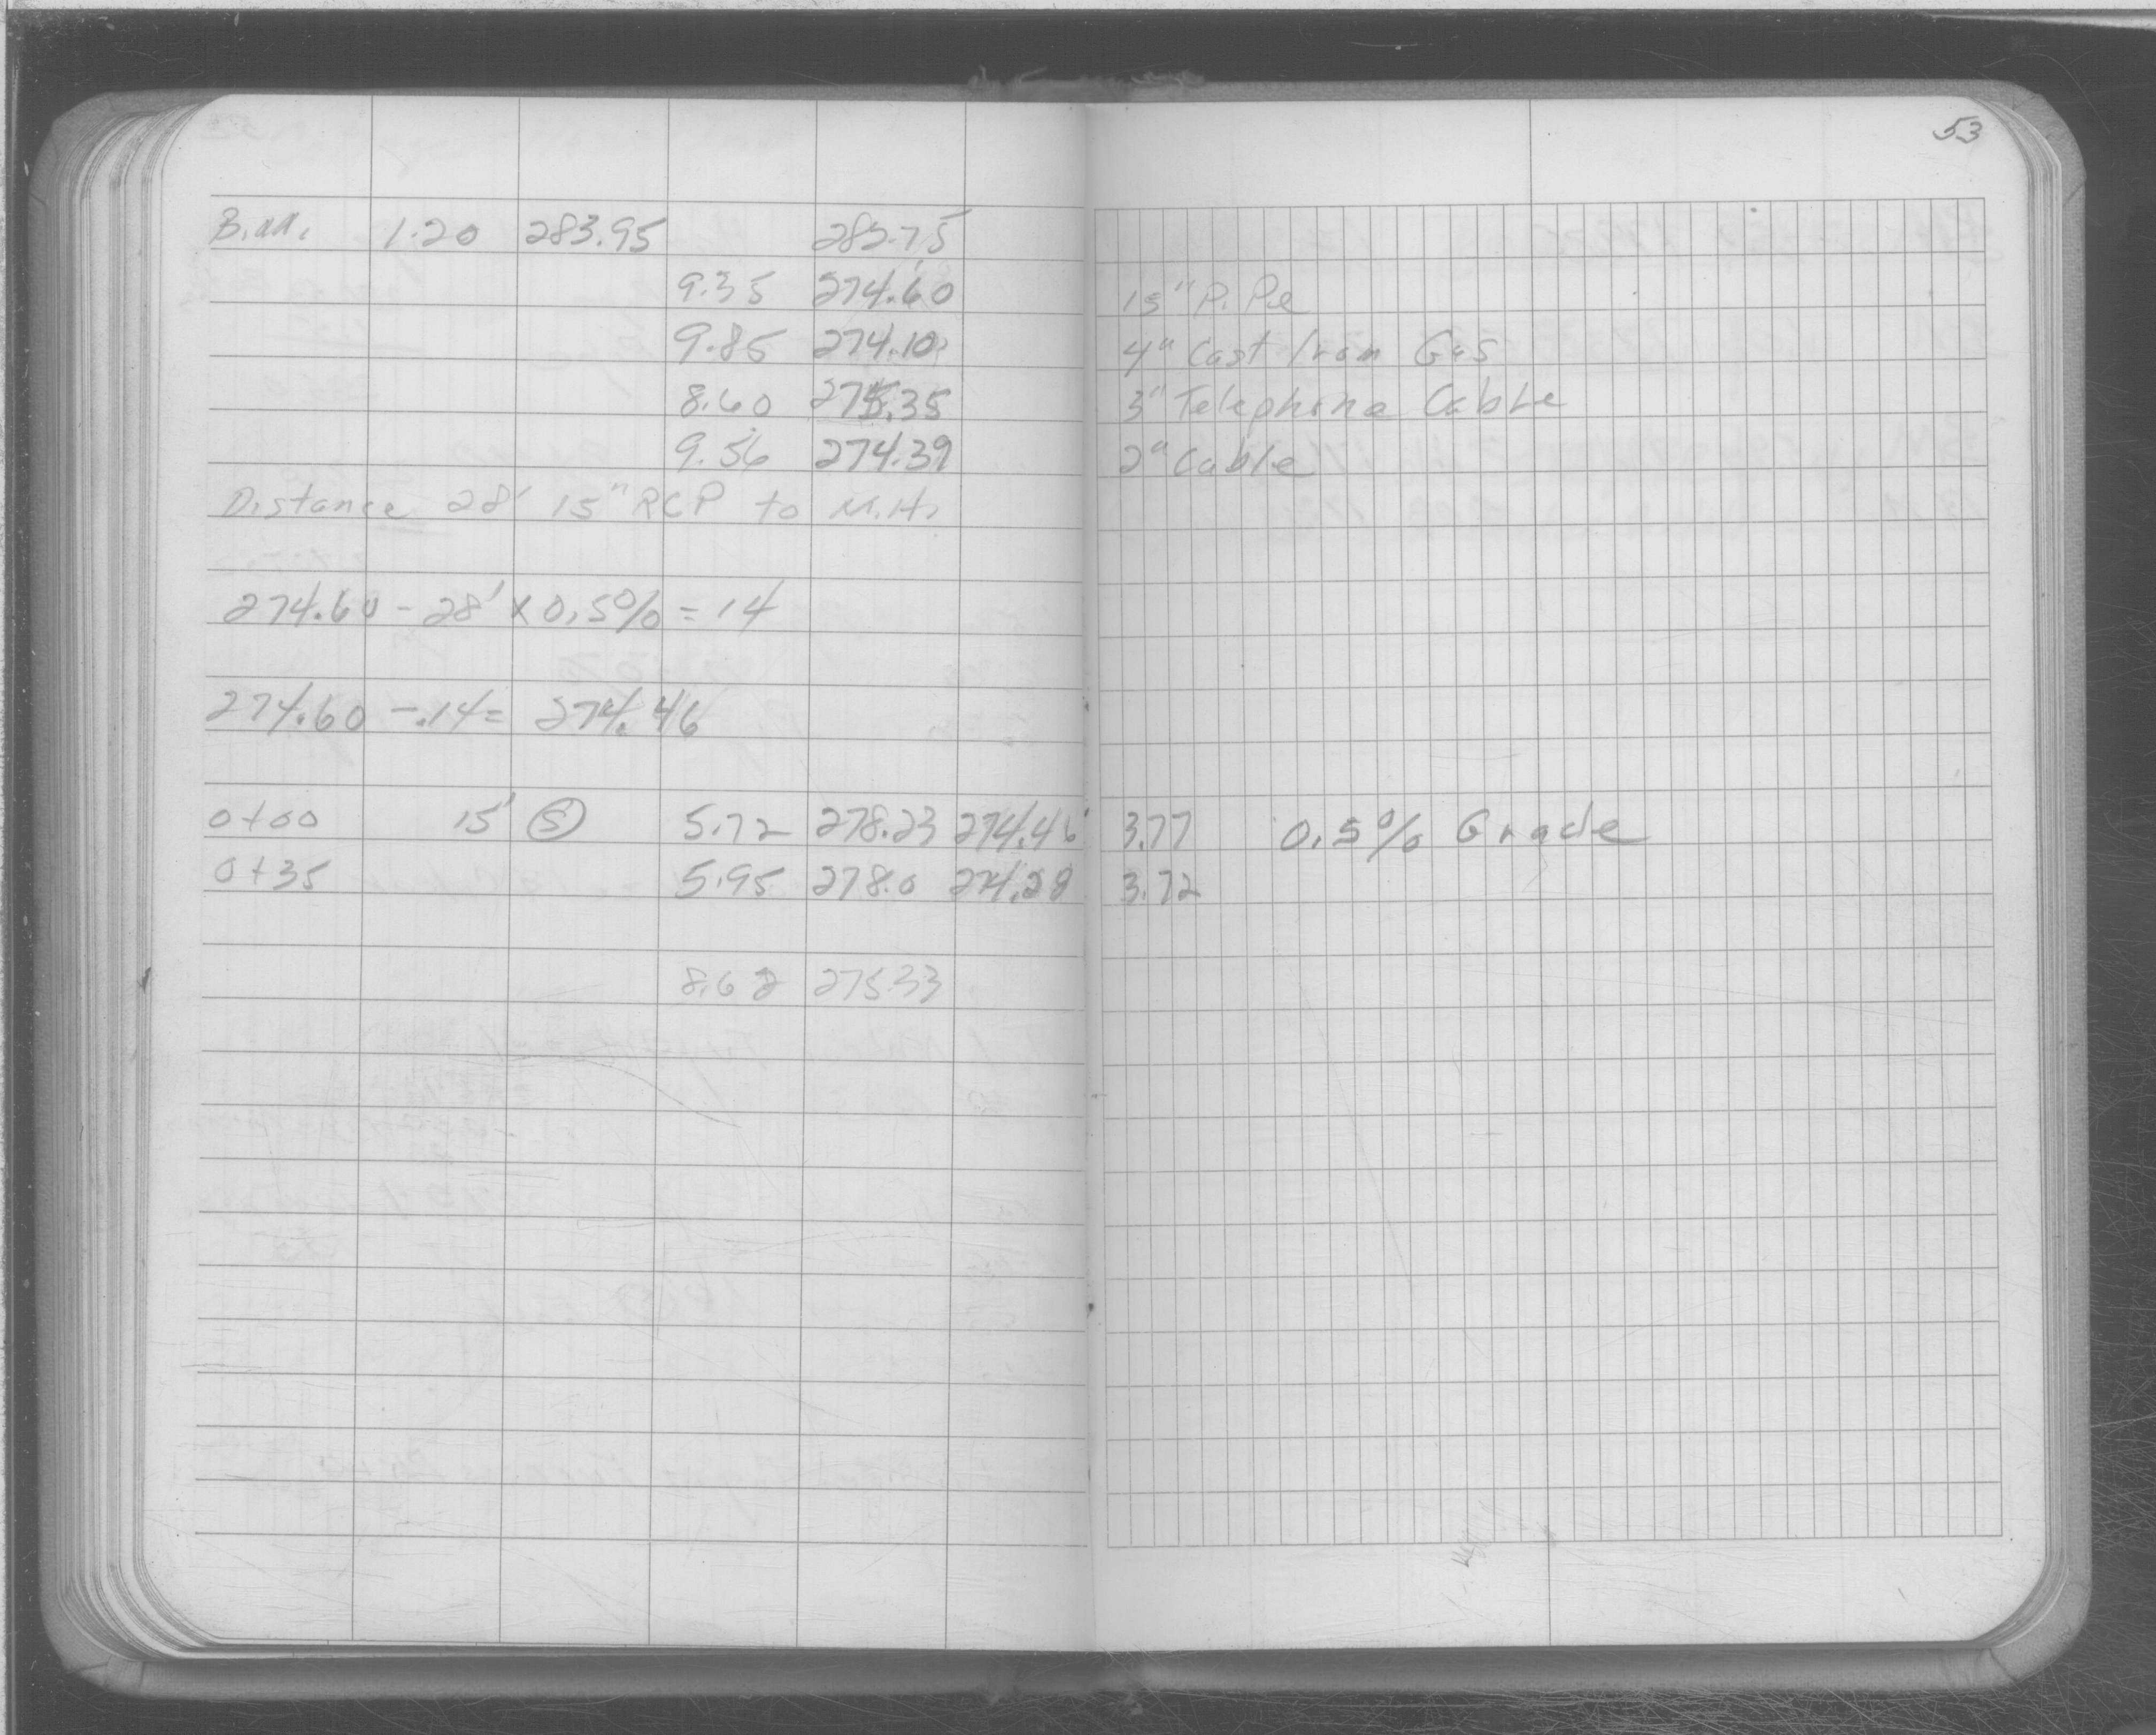 53
B.M. 1.20 283.95 282.75
9.35 274.60 15" Pipe
9.85 274.10 4" Cast Iron Gas
8.60 275.35 3" Telephone Cable
9.56 274.39 2" Cable
Distance 28' 15" RCP to M.H.
274.60 - 28' x 0.5% = 14
274.60 - .14 = 274.46
0+00 15' S 5.72 278.23 274.46 3.77 0.5% Grade
0+35 5.95 278.0 274.28 3.72
8.62 275.33